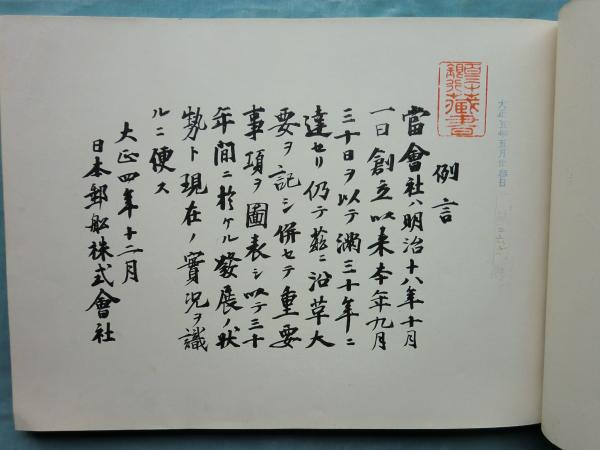 例言
當會社ハ明治十八年十月
一日創立以来本年九月
三十日ヲ以テ満三十年ニ
達セリ仍テ茲ニ沿革大
要ヲ記シ併セテ重要
事項ヲ圖表シ以テ三十
年間ニ於ケル發展ノ状
勢ト現在ノ實況ヲ識
ルニ便ス
大正四年十二月
日本郵舩株式會社